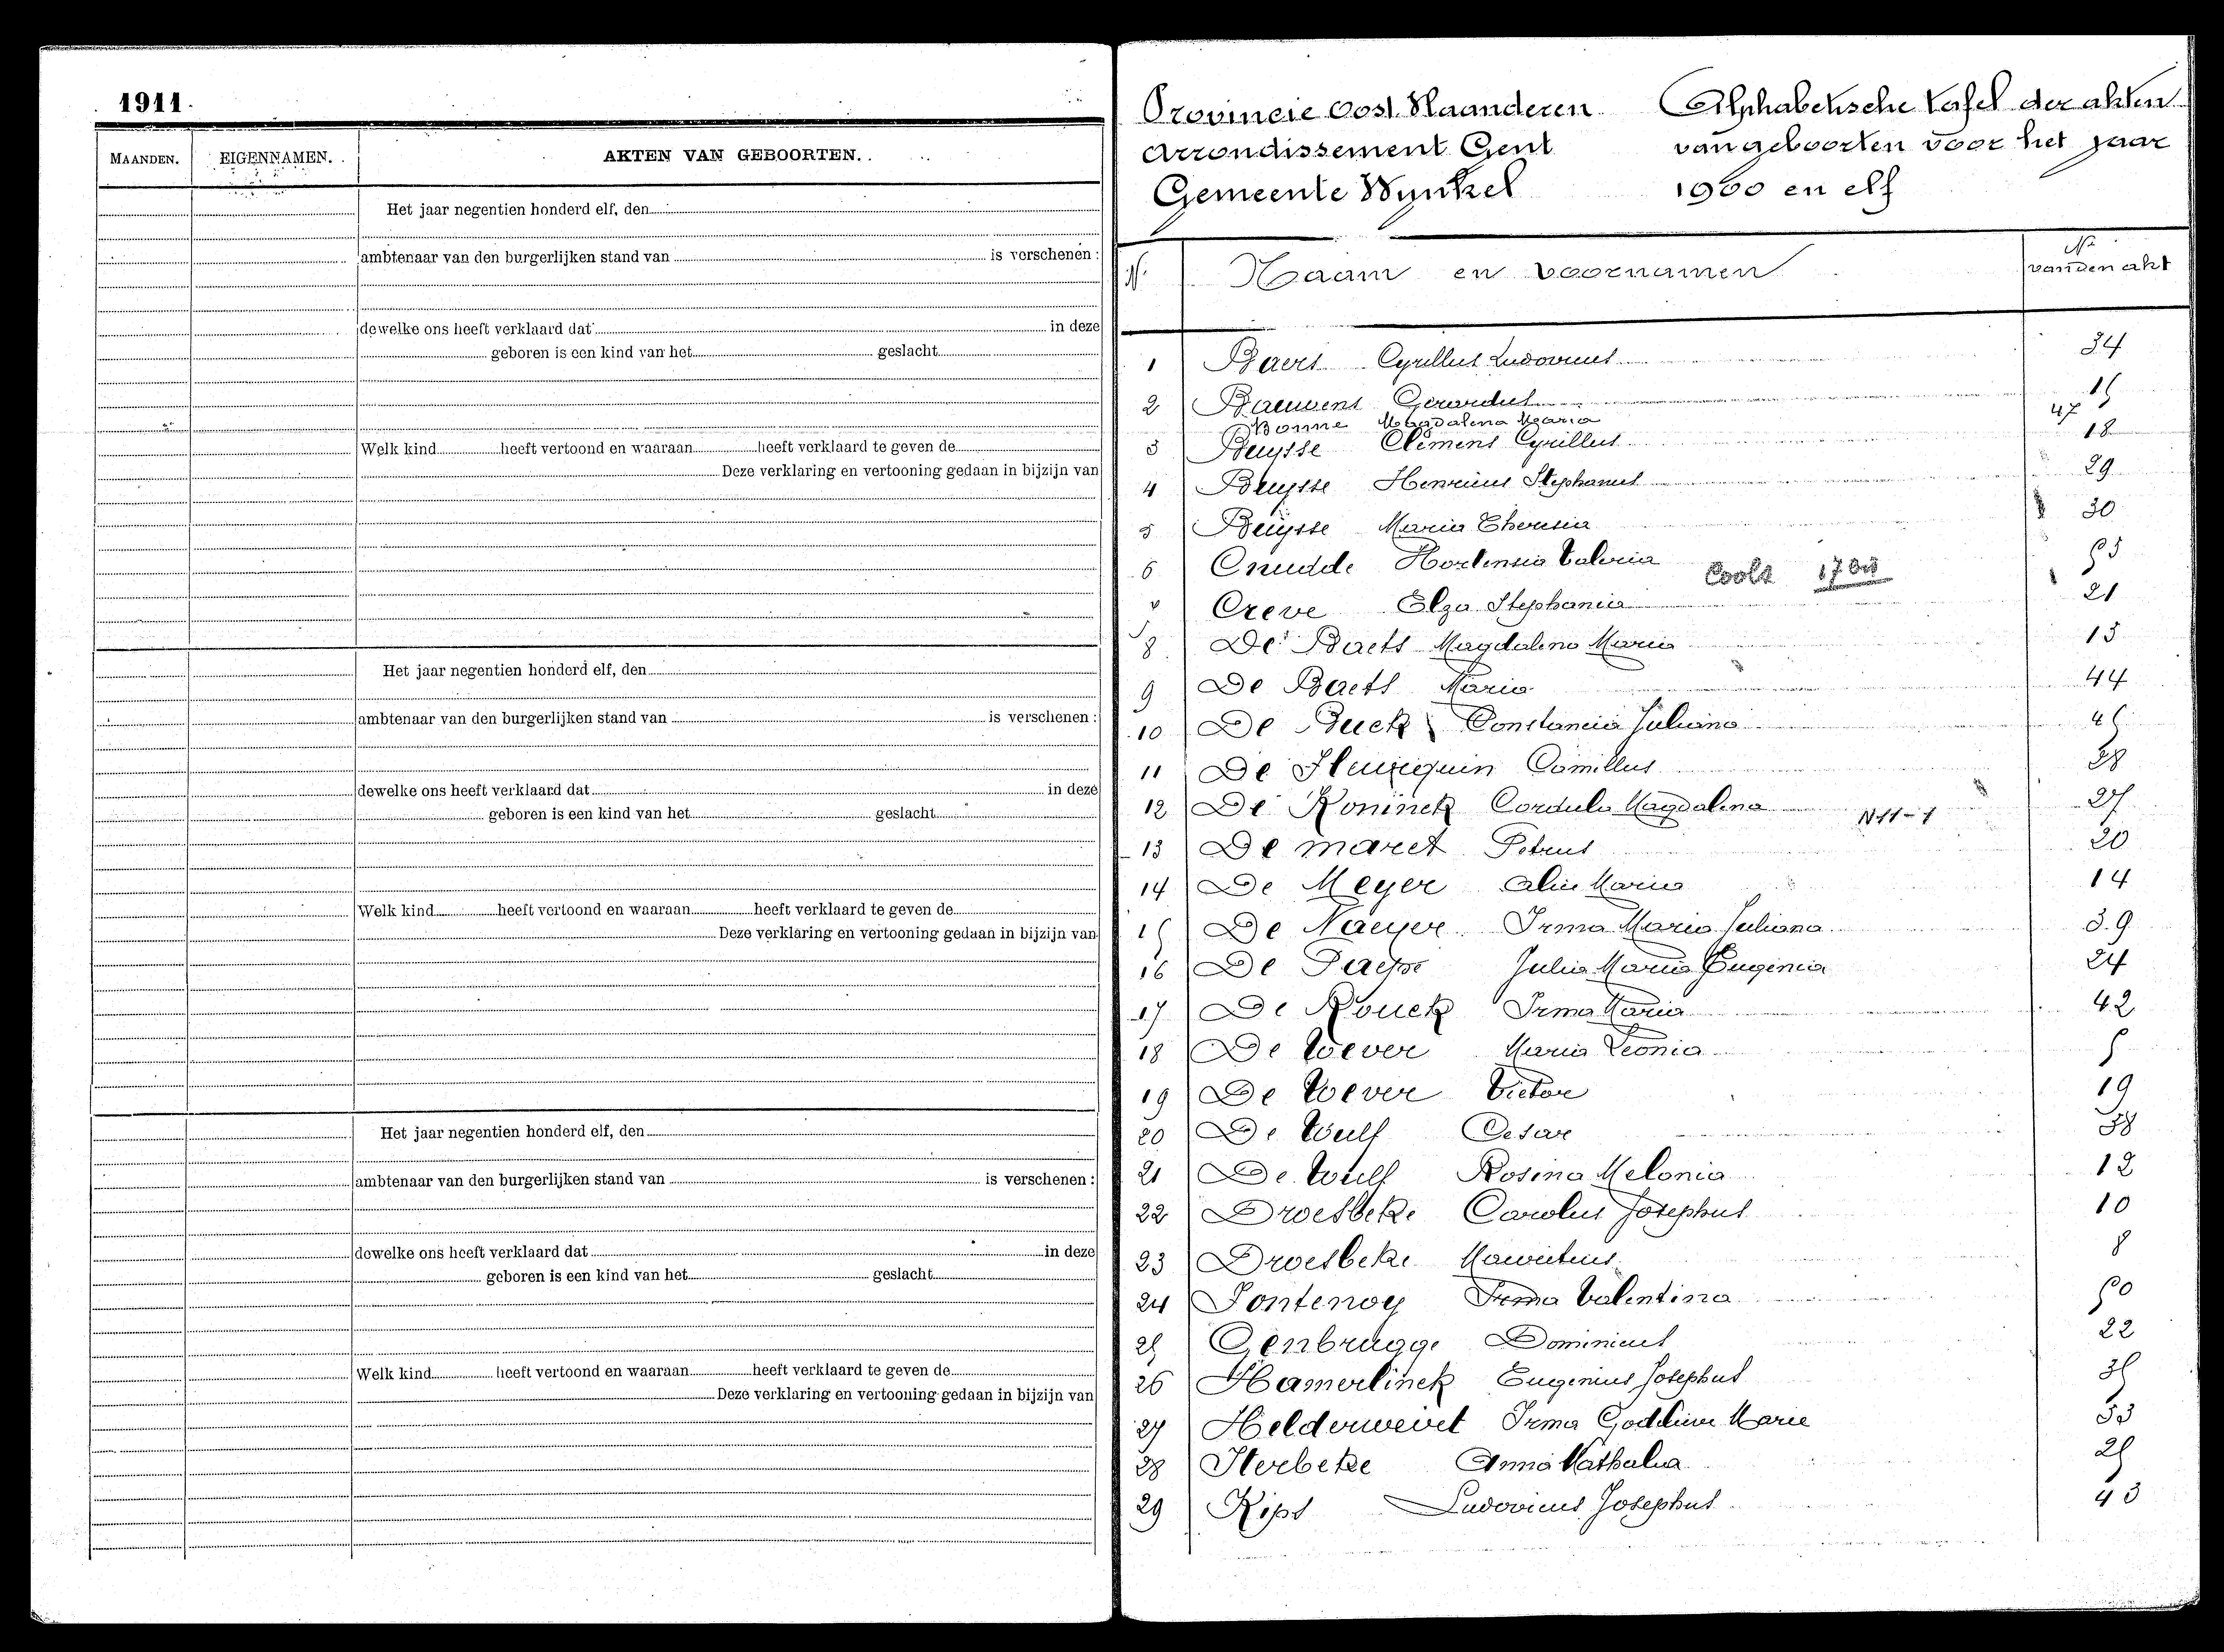 1911.
MAANDEN. EIGENNAMEN. AKTEN VAN GEBOORTEN.
Het jaar negentien honderd elf, den
ambtenaar van den burgerlijken stand van is verschenen :
dewelke ons heeft verklaard dat in deze
geboren is een kind van het geslacht
Welk kind heeft vertoond en waaraan heeft verklaard te geven de
Deze verklaring en vertooning gedaan in bijzijn van
Het jaar negentien honderd elf, den
ambtenaar van den burgerlijken stand van is verschenen :
dewelke ons heeft verklaard dat in deze
geboren is een kind van het geslacht
Welk kind heeft vertoond en waaraan heeft verklaard te geven de
Deze verklaring en vertooning gedaan in bijzijn van
Het jaar negentien honderd elf, den
ambtenaar van den burgerlijken stand van is verschenen :
dewelke ons heeft verklaard dat in deze
geboren is een kind van het geslacht
Welk kind heeft vertoond en waaraan heeft verklaard te geven de
Deze verklaring en vertooning gedaan in bijzijn van
Provincie Oost Vlaanderen Alphabetische tafel der akten
Arrondissement Gent van geboorten voor het jaar
Gemeente Wynkel 1900 en elf
N. Naam en voornamen Nr van den akt
1 Baers Cyrillus Ludovicus 34
2 Bauwens Gerardus 15
Bonne Magdalena Maria 47
3 Buysse Clemens Cyrillus 18
4 Buysse Henricus Stephanus 29
5 Buysse Maria Theresia 30
6 Cnudde Hortensia Valeria 53
Cools
7 Creve Elza Stephania 21
8 De Baets Magdalena Maria 13
9 De Baets Maria 44
10 De Buck Constancia Juliana 45
11 De Camillus 28
12 De Koninck Cordula Magdalena 27
N11-1
13 De maret Petrus 20
14 De Meyer Alin Maria 14
15 De Naeyer Irma Maria Juliana 39
16 De Paepe Julia Maria Eugenia 24
17 De Rouck Irma Maria 42
18 De Wever Maria Leonia 5
19 De Wever Victor 19
20 De Wulf Cesar 38
21 De Wulf Rosina Melonia 12
22 Droesbeke Carolus Josephus 10
23 Droesbeke Mauritius 8
24 Fontenoy Irma Valentina 50
25 Genbrugge Dominicus 22
26 Hamerlinck Eugenius Josephus 35
27 Helderweirt Irma Marie 33
28 Herbeke Anna Nathalia 25
29 Kips Ludovicus Josephus 43